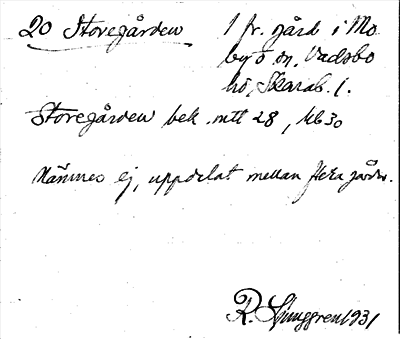 20 Storegården 1 fr. gård i Mo
by o sn. Vadsbo
hd, Skarab. l.
Storegården bek. mtl 28, kb 30
Nämnes ej, uppdelat mellan flera gårdar.
R. Ljunggren 1931